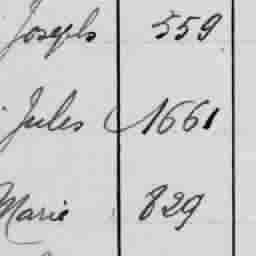 Joseph 559
Jules 1661
Marie 829